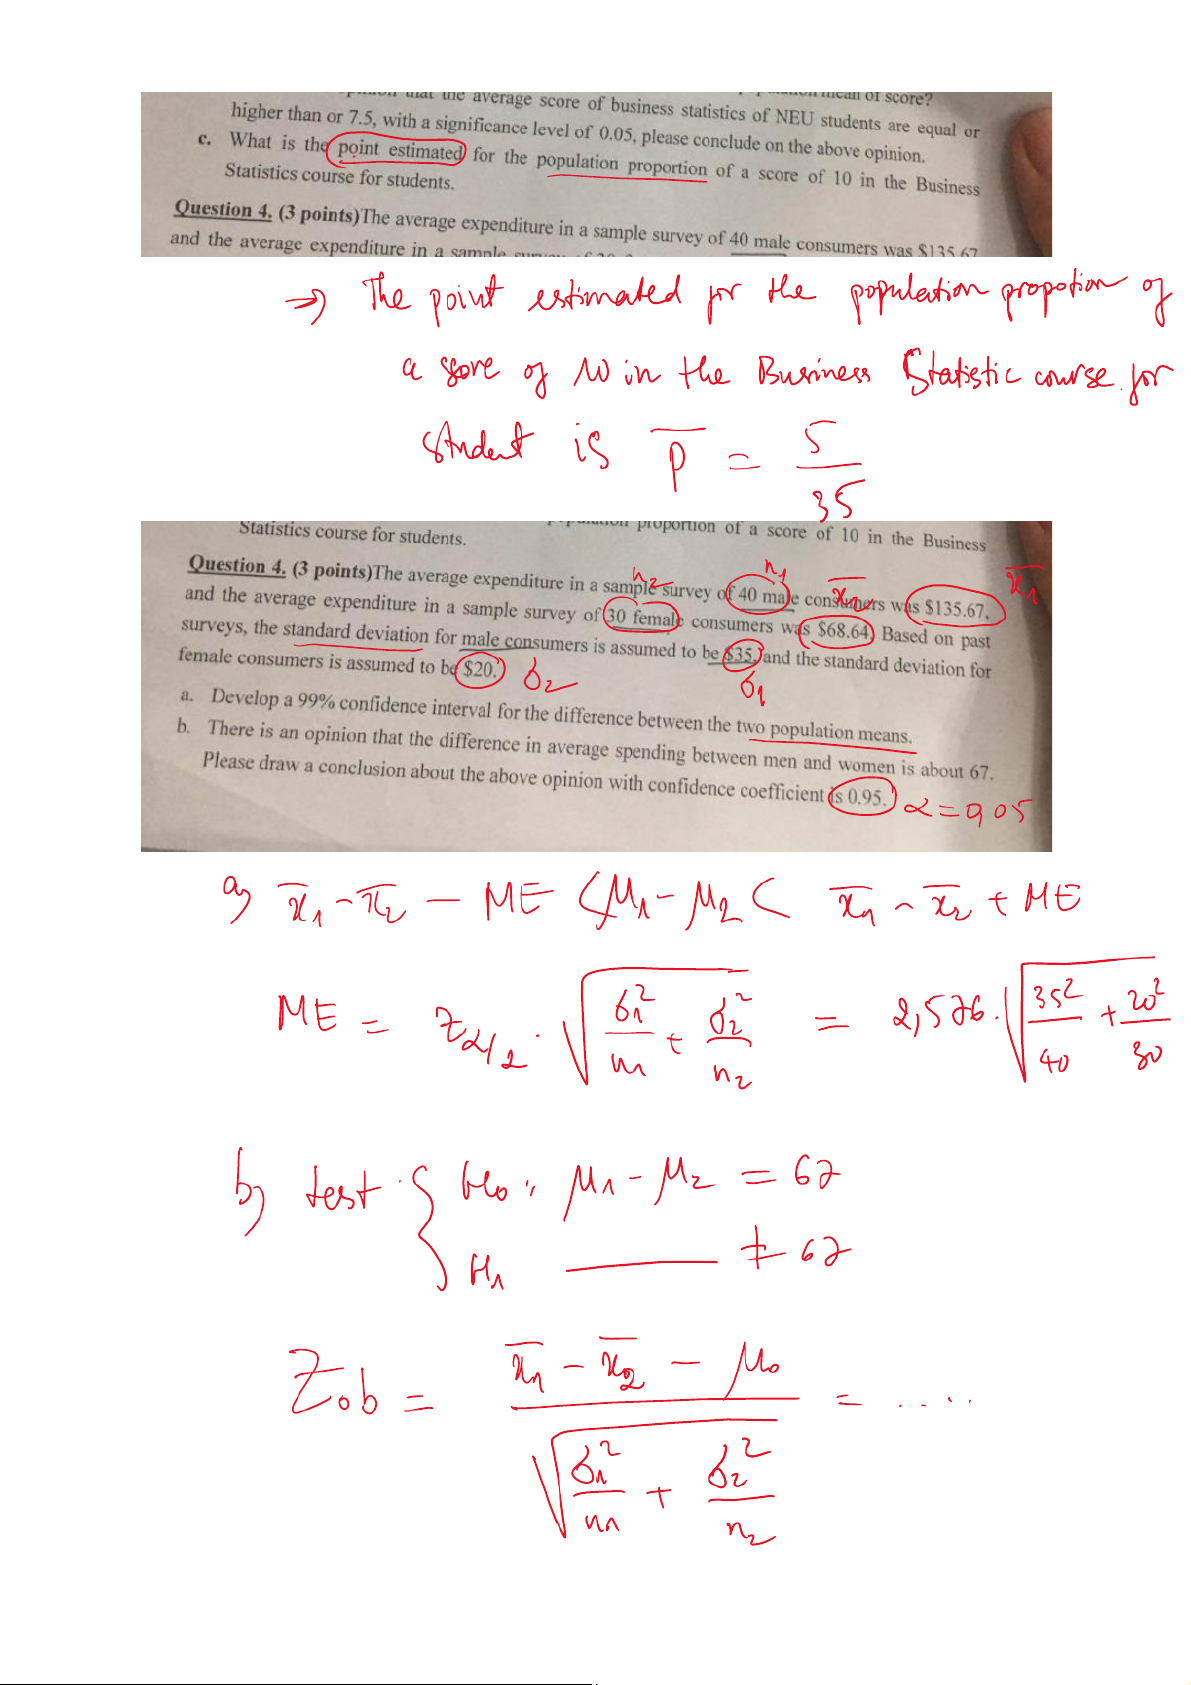 that the average score of business statistics of NEU students are equal or
mean of score?
higher than or 7.5, with a significance level of 0.05, please conclude on the above opinion.
c. What is the point estimated for the population proportion of a score of 10 in the Business
Statistics course for students.
Question 4. (3 points)The average expenditure in a sample survey of 40 male consumers was $135.67
and the average expenditure in a sample
=> The point estimated for the population propotion of
a score of 10 in the Business Statistic course for
student is p̅ = 5/35
Statistics course for students.
proportion of a score of 10 in the Business
n₂ n₁ x̅₂ x̅₁
Question 4. (3 points)The average expenditure in a sample survey of 40 male consumers was $135.67,
and the average expenditure in a sample survey of 30 female consumers was $68.64. Based on past
surveys, the standard deviation for male consumers is assumed to be $35, and the standard deviation for
female consumers is assumed to be $20. σ₂ σ₁
a. Develop a 99% confidence interval for the difference between the two population means.
b. There is an opinion that the difference in average spending between men and women is about 67.
Please draw a conclusion about the above opinion with confidence coefficient is 0.95. α = 0,05
a) x̅₁ - x̅₂ - ME < μ₁ - μ₂ < x̅₁ - x̅₂ + ME
ME = z_{α/2} · √(σ₁²/n₁ + σ₂²/n₂) = 2,576 · √(35²/40 + 20²/30)
b) test { H₀: μ₁ - μ₂ = 67
H₁ ——— ≠ 67
Zob = (x̅₁ - x̅₂ - μ₀) / √(σ₁²/n₁ + σ₂²/n₂) = .....